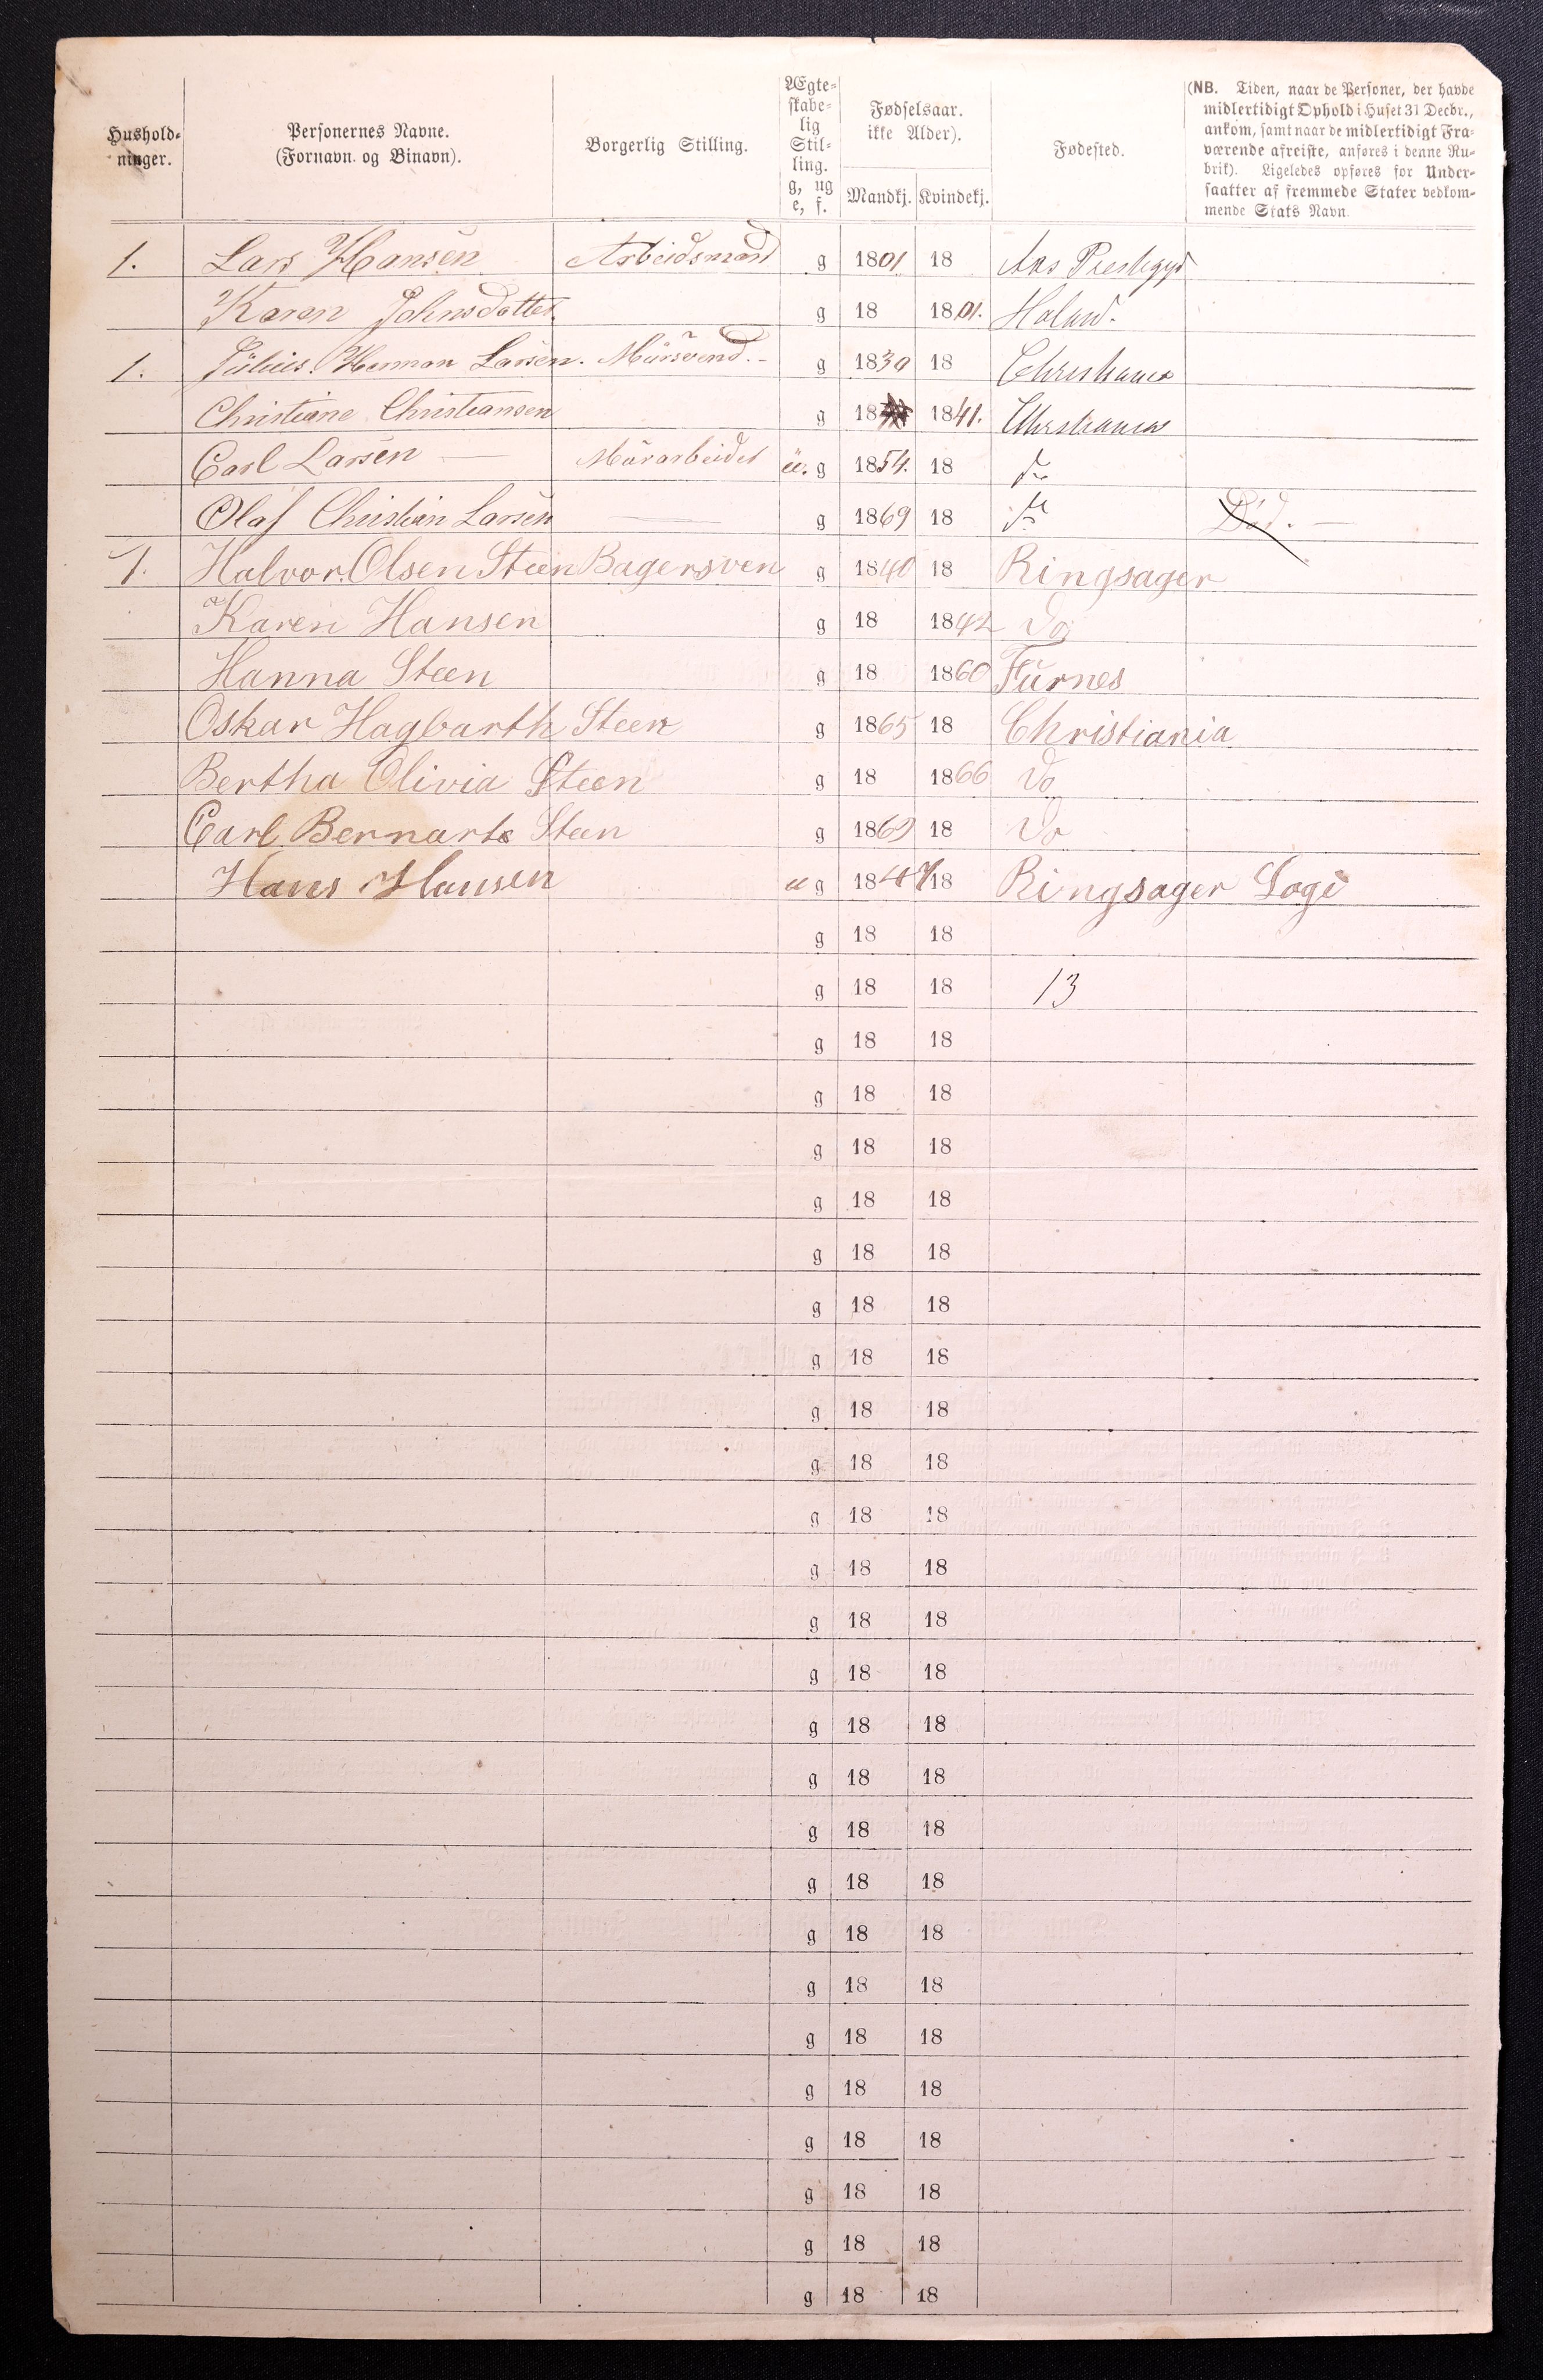 Hushold-
ninger.
Personernes Navne.
(Fornavn og Binavn).
Borgerlig Stilling.
Ægte-
skabe-
lig
Stil-
ling.
g, ug
e, f.
Fødselsaar.
ikke Alder).
Mandkj. Kvindekj.
Fødested.
(NB. Tiden, naar de Personer, der havde
midlertidigt Ophold i Huset 31 Decbr.,
ankom, samt naar de midlertidigt Fra-
værende afreiste, anføres i denne Ru-
brik). Ligeledes opføres for Under-
saatter af fremmede Stater vedkom-
mende Stats Navn.
1. Lars Hansen Arbeidsmand g 1801 18 Aas Prestegjd
Karen Johnsdatter g 18 1801. Holand.
1. Julius Herman Larsen. Mursvend. g 1830 18 Christiania
Christiane Christiansen g 18 1841. Christiania
Carl Larsen Murarbeider u. g 1854. 18 do
Olaf Christian Larsen g 1869 18 do Død.
1. Halvor Olsen Steen Bagersven g 1840 18 Ringsager
Karen Hansen g 18 1842 do
Hanna Steen g 18 1860 Furnes
Oskar Hagbarth Steen g 1865 18 Christiania
Bertha Olivia Steen g 18 1866 do
Carl Bernart Steen g 1869 18 do
Hans Hansen u g 1847 18 Ringsager Logi
g 18 18
g 18 18 13
g 18 18
g 18 18
g 18 18
g 18 18
g 18 18
g 18 18
g 18 18
g 18 18
g 18 18
g 18 18
g 18 18
g 18 18
g 18 18
g 18 18
g 18 18
g 18 18
g 18 18
g 18 18
g 18 18
g 18 18
g 18 18
g 18 18
g 18 18
g 18 18
g 18 18